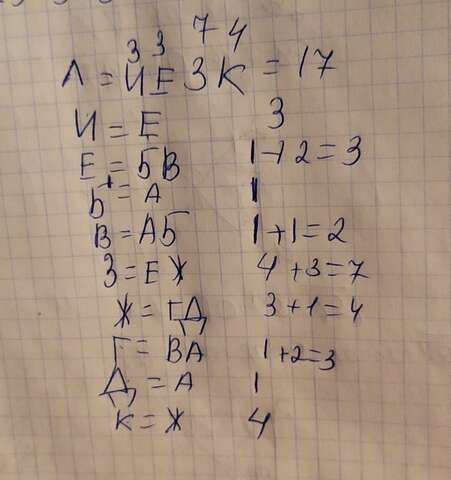 3 3 7 4
Л = И Е З К = 17
И = Е 3
Е = БВ 1 + 2 = 3
Б = А 1
В = АБ 1 + 1 = 2
З = Е Ж 4 + 3 = 7
Ж = ГД 3 + 1 = 4
Г = ВА 1 + 2 = 3
Д = А 1
К = Ж 4